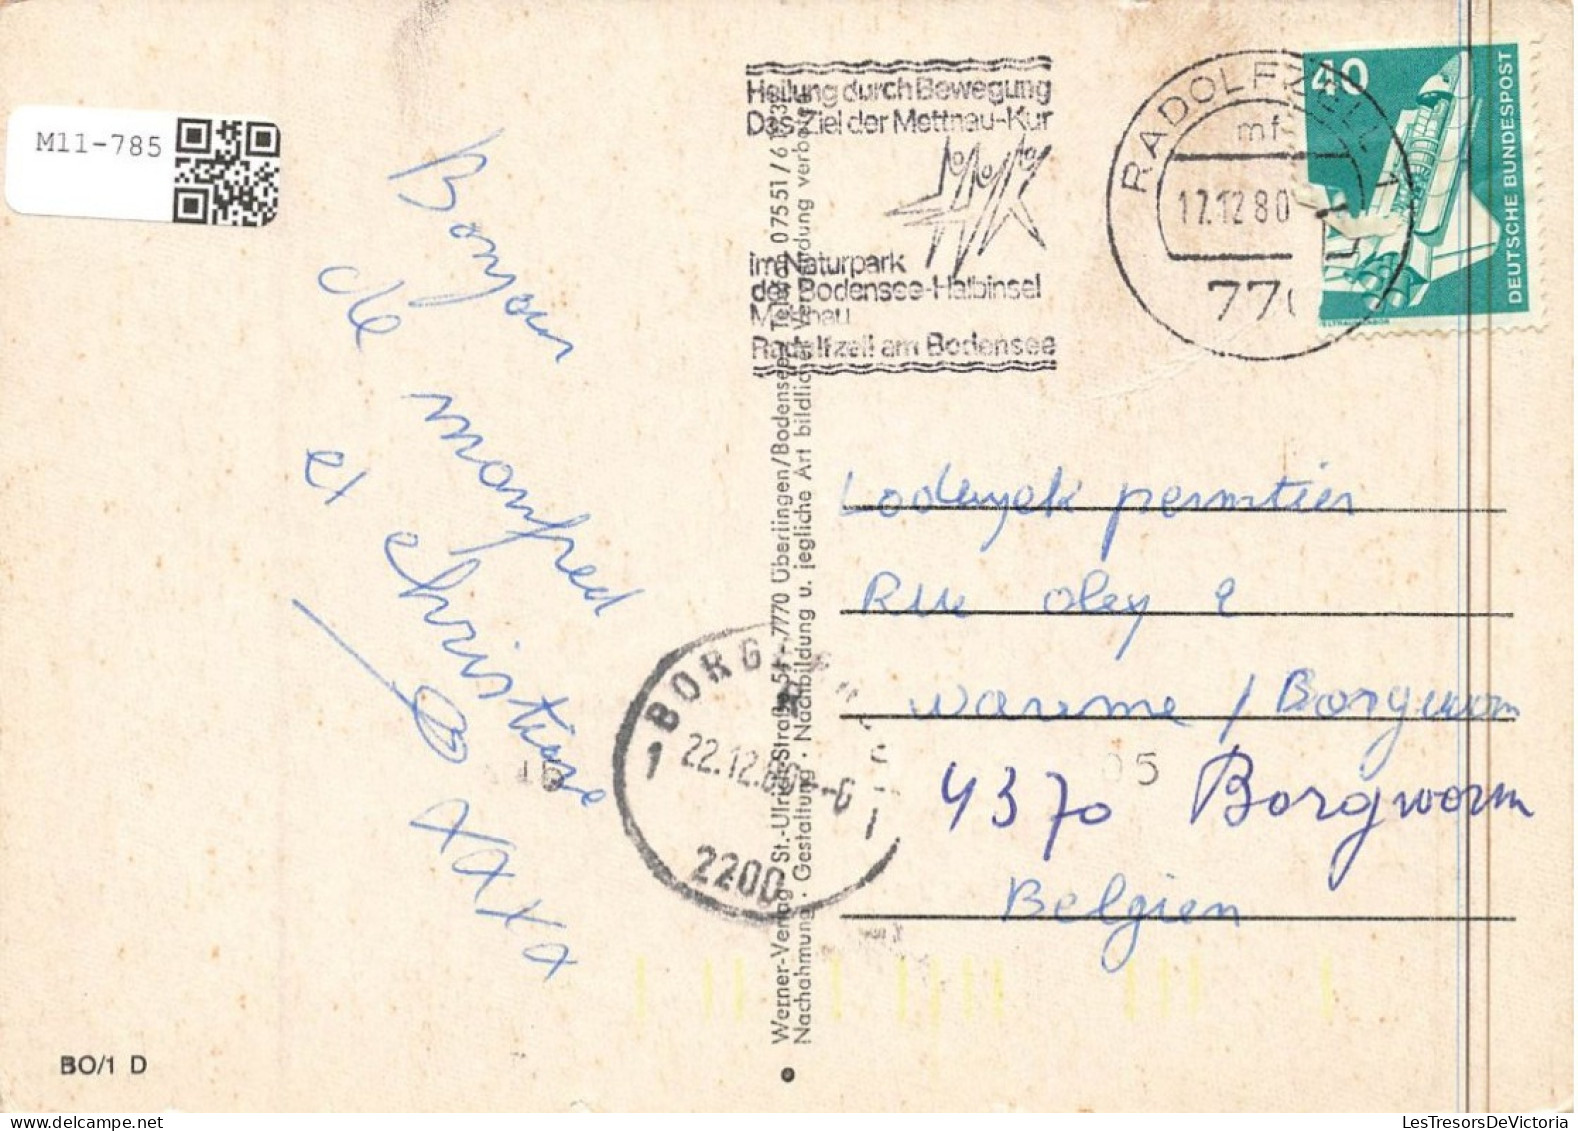 M11-785
Heilung durch Bewegung
Das Ziel der Mettnau-Kur
im Naturpark
der Bodensee-Halbinsel
Mettnau
Radolfzell am Bodensee
RADOLFZELL 1
mf
17.12.80
770
40
DEUTSCHE BUNDESPOST
Bonjour
de manfred
et christiane
xxxx
Werner-Verlag · St.-Ulrich-Straße 51 · 7770 Überlingen/Bodensee · Telefon 07551/6
Nachahmung · Gestaltung · Nachbildung u. jegliche Art bildlicher Verwendung verboten
Lodewyck permtier
Rue oley 2
wareme / Borgworm
4370 Borgworm
Belgien
05
1 BORG
22.12.80
-6
1
2200
BO/1 D
LesTresorsDeVictoria.com